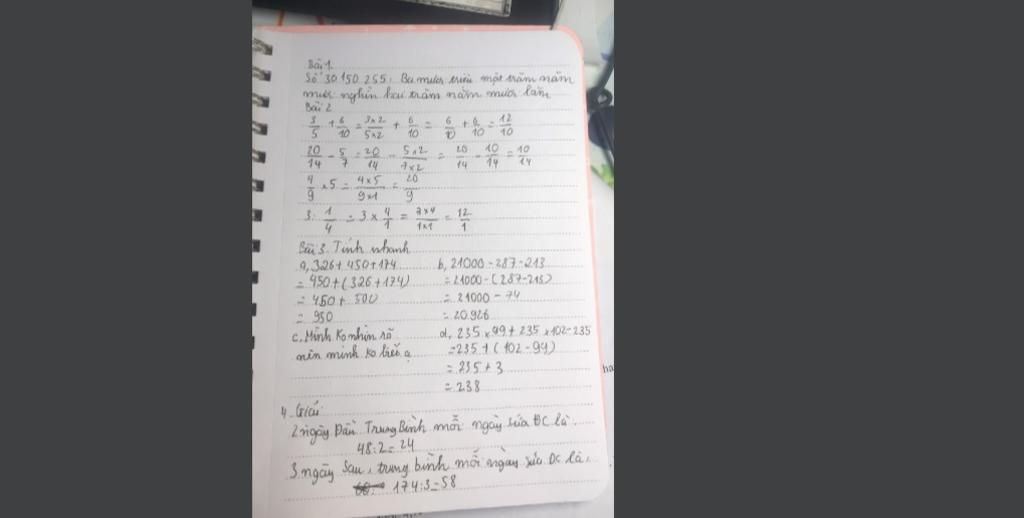 Bài 1.
Số 30 150 255: Ba mươi triệu một trăm năm
mươi nghìn hai trăm năm mươi lăm
Bài 2
3/5 + 6/10 = 3×2/5×2 + 6/10 = 6/10 + 6/10 = 12/10
20/14 - 5/7 = 20/14 - 5×2/7×2 = 20/14 - 10/14 = 10/14
4/9 × 5 = 4×5/9×1 = 20/9
3 : 1/4 = 3 × 4/1 = 3×4/1×1 = 12/1
Bài 3. Tính nhanh
a, 326 + 450 + 174
= 450 + (326 + 174)
= 450 + 500
= 950
b, 21000 - 287 - 213
= 21000 - (287 - 213)
= 21000 - 74
= 20.926
c. Mình ko nhìn rõ
nên mình ko biết ạ
d, 235 × 99 + 235 × 102 - 235
= 235 + (102 - 99)
= 235 + 3
= 238
4. Giải
2 ngày Đầu Trung Bình mỗi ngày sửa ĐC là:
48 : 2 = 24
3 ngày sau, trung bình mỗi ngày sửa ĐC là:
174 : 3 = 58